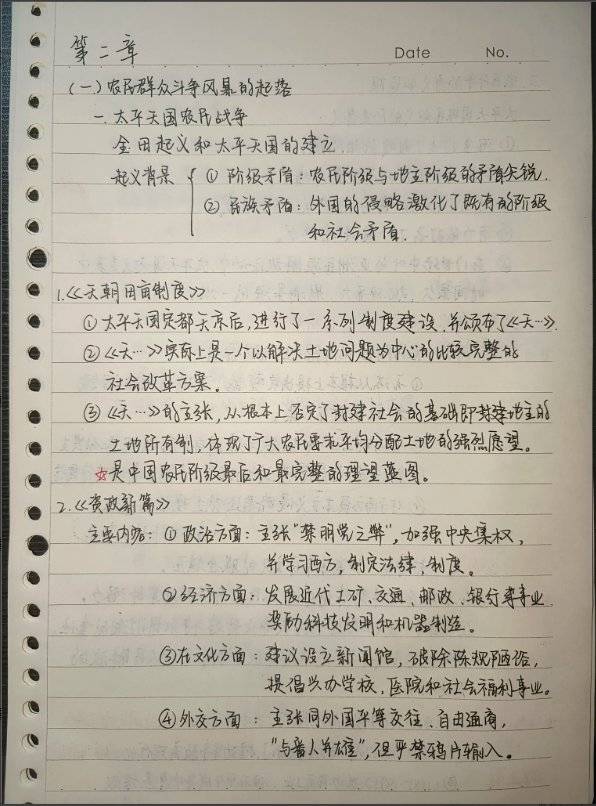 第二章
Date No.
(一)农民群众斗争风暴的起落
一.太平天国农民战争
金田起义和太平天国的建立
起义背景 ①阶级矛盾:农民阶级与地主阶级的矛盾尖锐.
②民族矛盾:外国的侵略激化了既有的阶级
和社会矛盾.
1.《天朝田亩制度》
①太平天国定都天京后,进行了一系列制度建设,并颁布了《天…》.
②《天…》实际上是一个以解决土地问题为中心的比较完整的
社会改革方案。
③《天…》的主张,从根本上否定了封建社会的基础即封建地主的
土地所有制,体现了广大农民要求平均分配土地的强烈愿望。
☆是中国农民阶级最后和最完整的理望蓝图。
2.《资政新篇》
主要内容:①政治方面:主张“禁朋党之弊”,加强中央集权,
并学习西方,制定法律,制度。
②经济方面:发展近代工矿、交通、邮政、银行等事业
奖励科技发明和机器制造。
③在文化方面:建议设立新闻馆,破除陈规陋俗,
提倡兴办学校、医院和社会福利事业。
④外交方面:主张同外国平等交往、自由通商,
“与番人并雄”,但严禁鸦片输入。